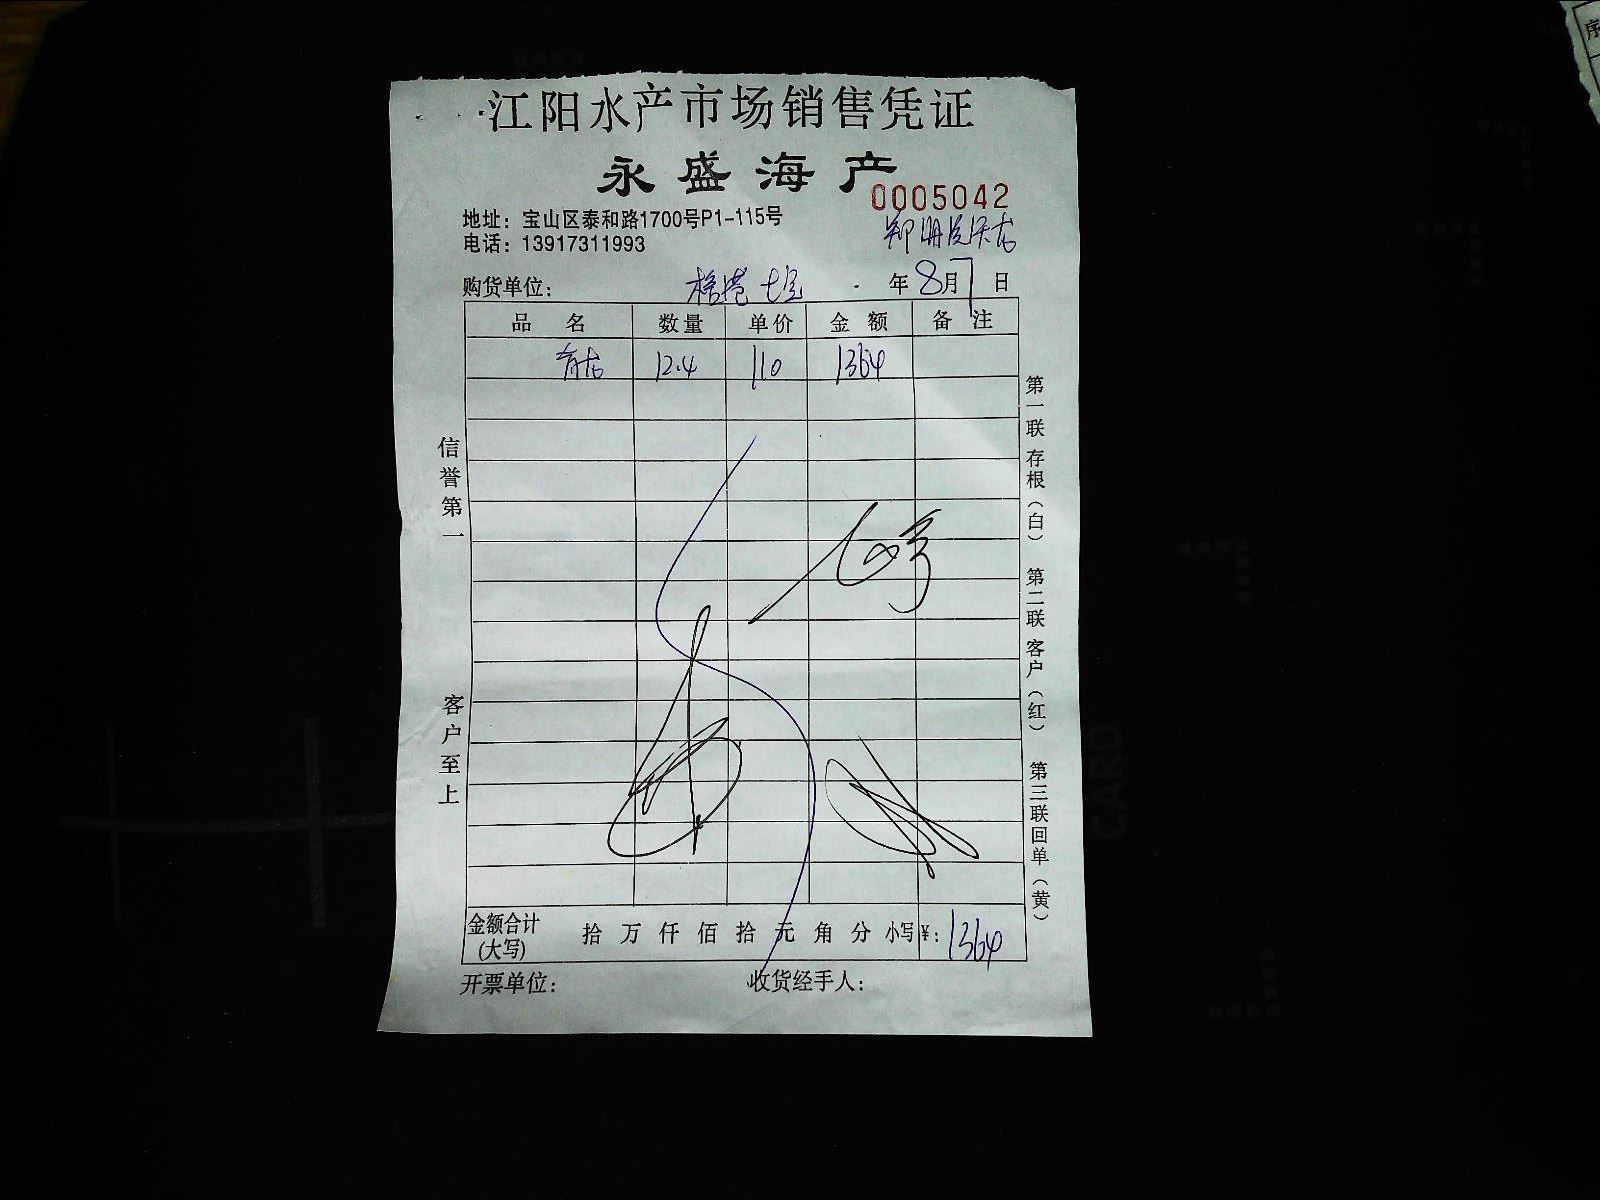 江阳水产市场销售凭证
永盛海产
0005042
地址：宝山区泰和路1700号P1-115号
电话：13917311993
购货单位： 年8月7日
品名 数量 单价 金额 备注
青龙 12.4 110 1364
信誉第一
客户至上
第一联 存根（白） 第二联 客户（红） 第三联 回单（黄）
金额合计(大写) 拾 万 仟 佰 拾 元 角 分 小写¥：1364
开票单位： 收货经手人：
CARD
序